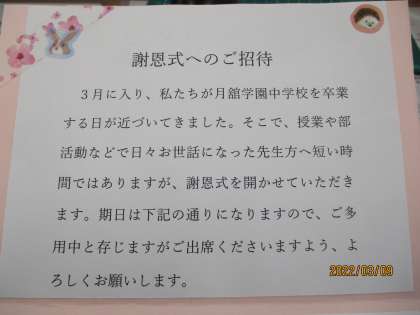 謝恩式へのご招待
３月に入り、私たちが月舘学園中学校を卒業
する日が近づいてきました。そこで、授業や部
活動などで日々お世話になった先生方へ短い時
間ではありますが、謝恩式を開かせていただき
ます。期日は下記の通りになりますので、ご多
用中と存じますがご出席くださいますよう、よ
ろしくお願いします。
2022/03/09